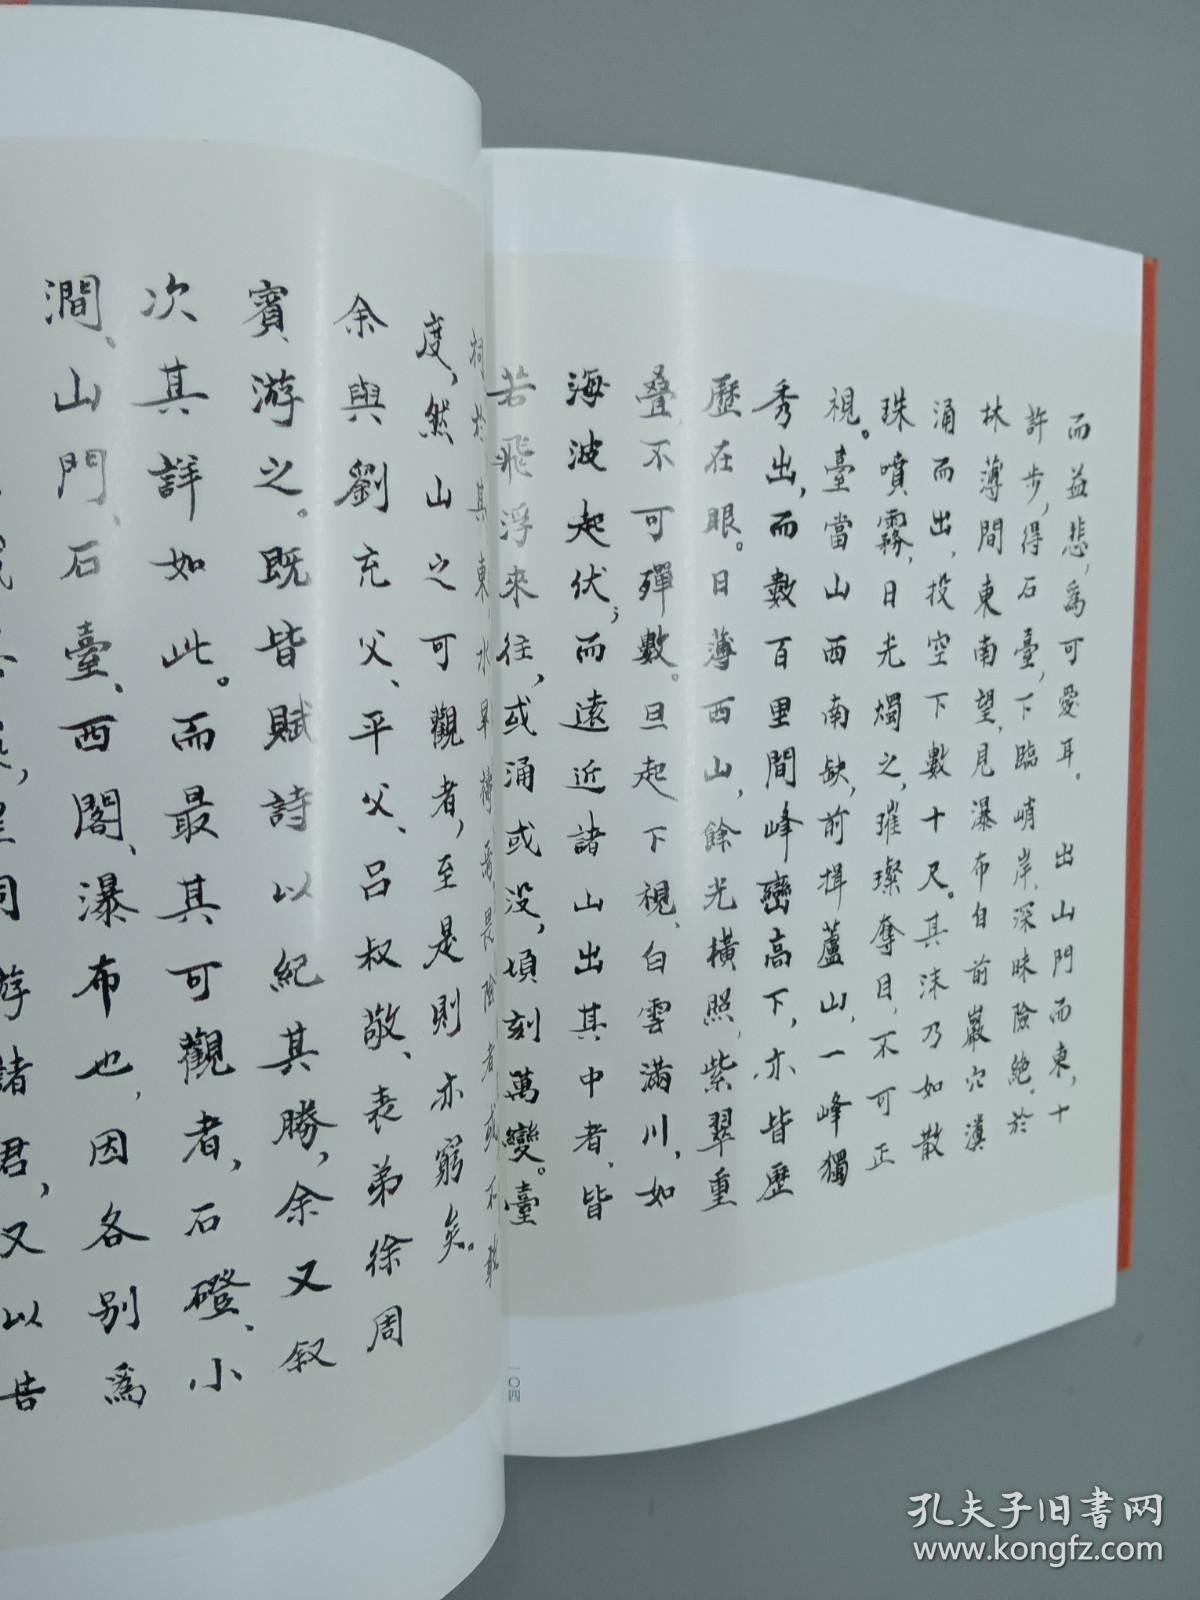 而益悲，爲可愛耳。　出山門而東，十
許步，得石臺，下臨峭岸，深昧險絶。於
林薄間東南望，見瀑布自前巖穴瀵
涌而出，投空下數十尺。其沫乃如散
珠噴霧，日光燭之，璀璨奪目，不可正
視。臺當山西南缺，前揖蘆山，一峰獨
秀出，而數百里間峰巒高下，亦皆歷
歷在眼。日薄西山，餘光橫照，紫翠重
叠，不可殫數。旦起下視，白雲滿川，如
海波起伏；而遠近諸山出其中者，皆
若飛浮來往，或涌或没，頃刻萬變。臺
祠於其東，水旱禱焉，畏險者或不敢
度，然山之可觀者，至是則亦窮矣。
余與劉充父、平父、呂叔敬、表弟徐周
賓游之。既皆賦詩以紀其勝，余又叙
次其詳如此。而最其可觀者，石磴、小
澗、山門、石臺、西閣、瀑布也，因各别爲
同游諸君，又以告
一〇四
孔夫子旧书网
www.kongfz.com